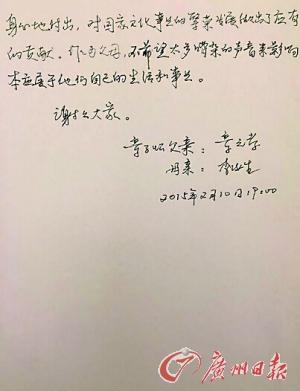 身心地付出，对国家文化事业的繁荣发展做出了应有
的贡献。作为父母，不希望太多嘈杂的声音来影响
本应属于他们自己的生活和事业。
谢谢大家。
章子怡父亲：章元孝
母亲：李涿生
2015年2月10日19:00
广州日报